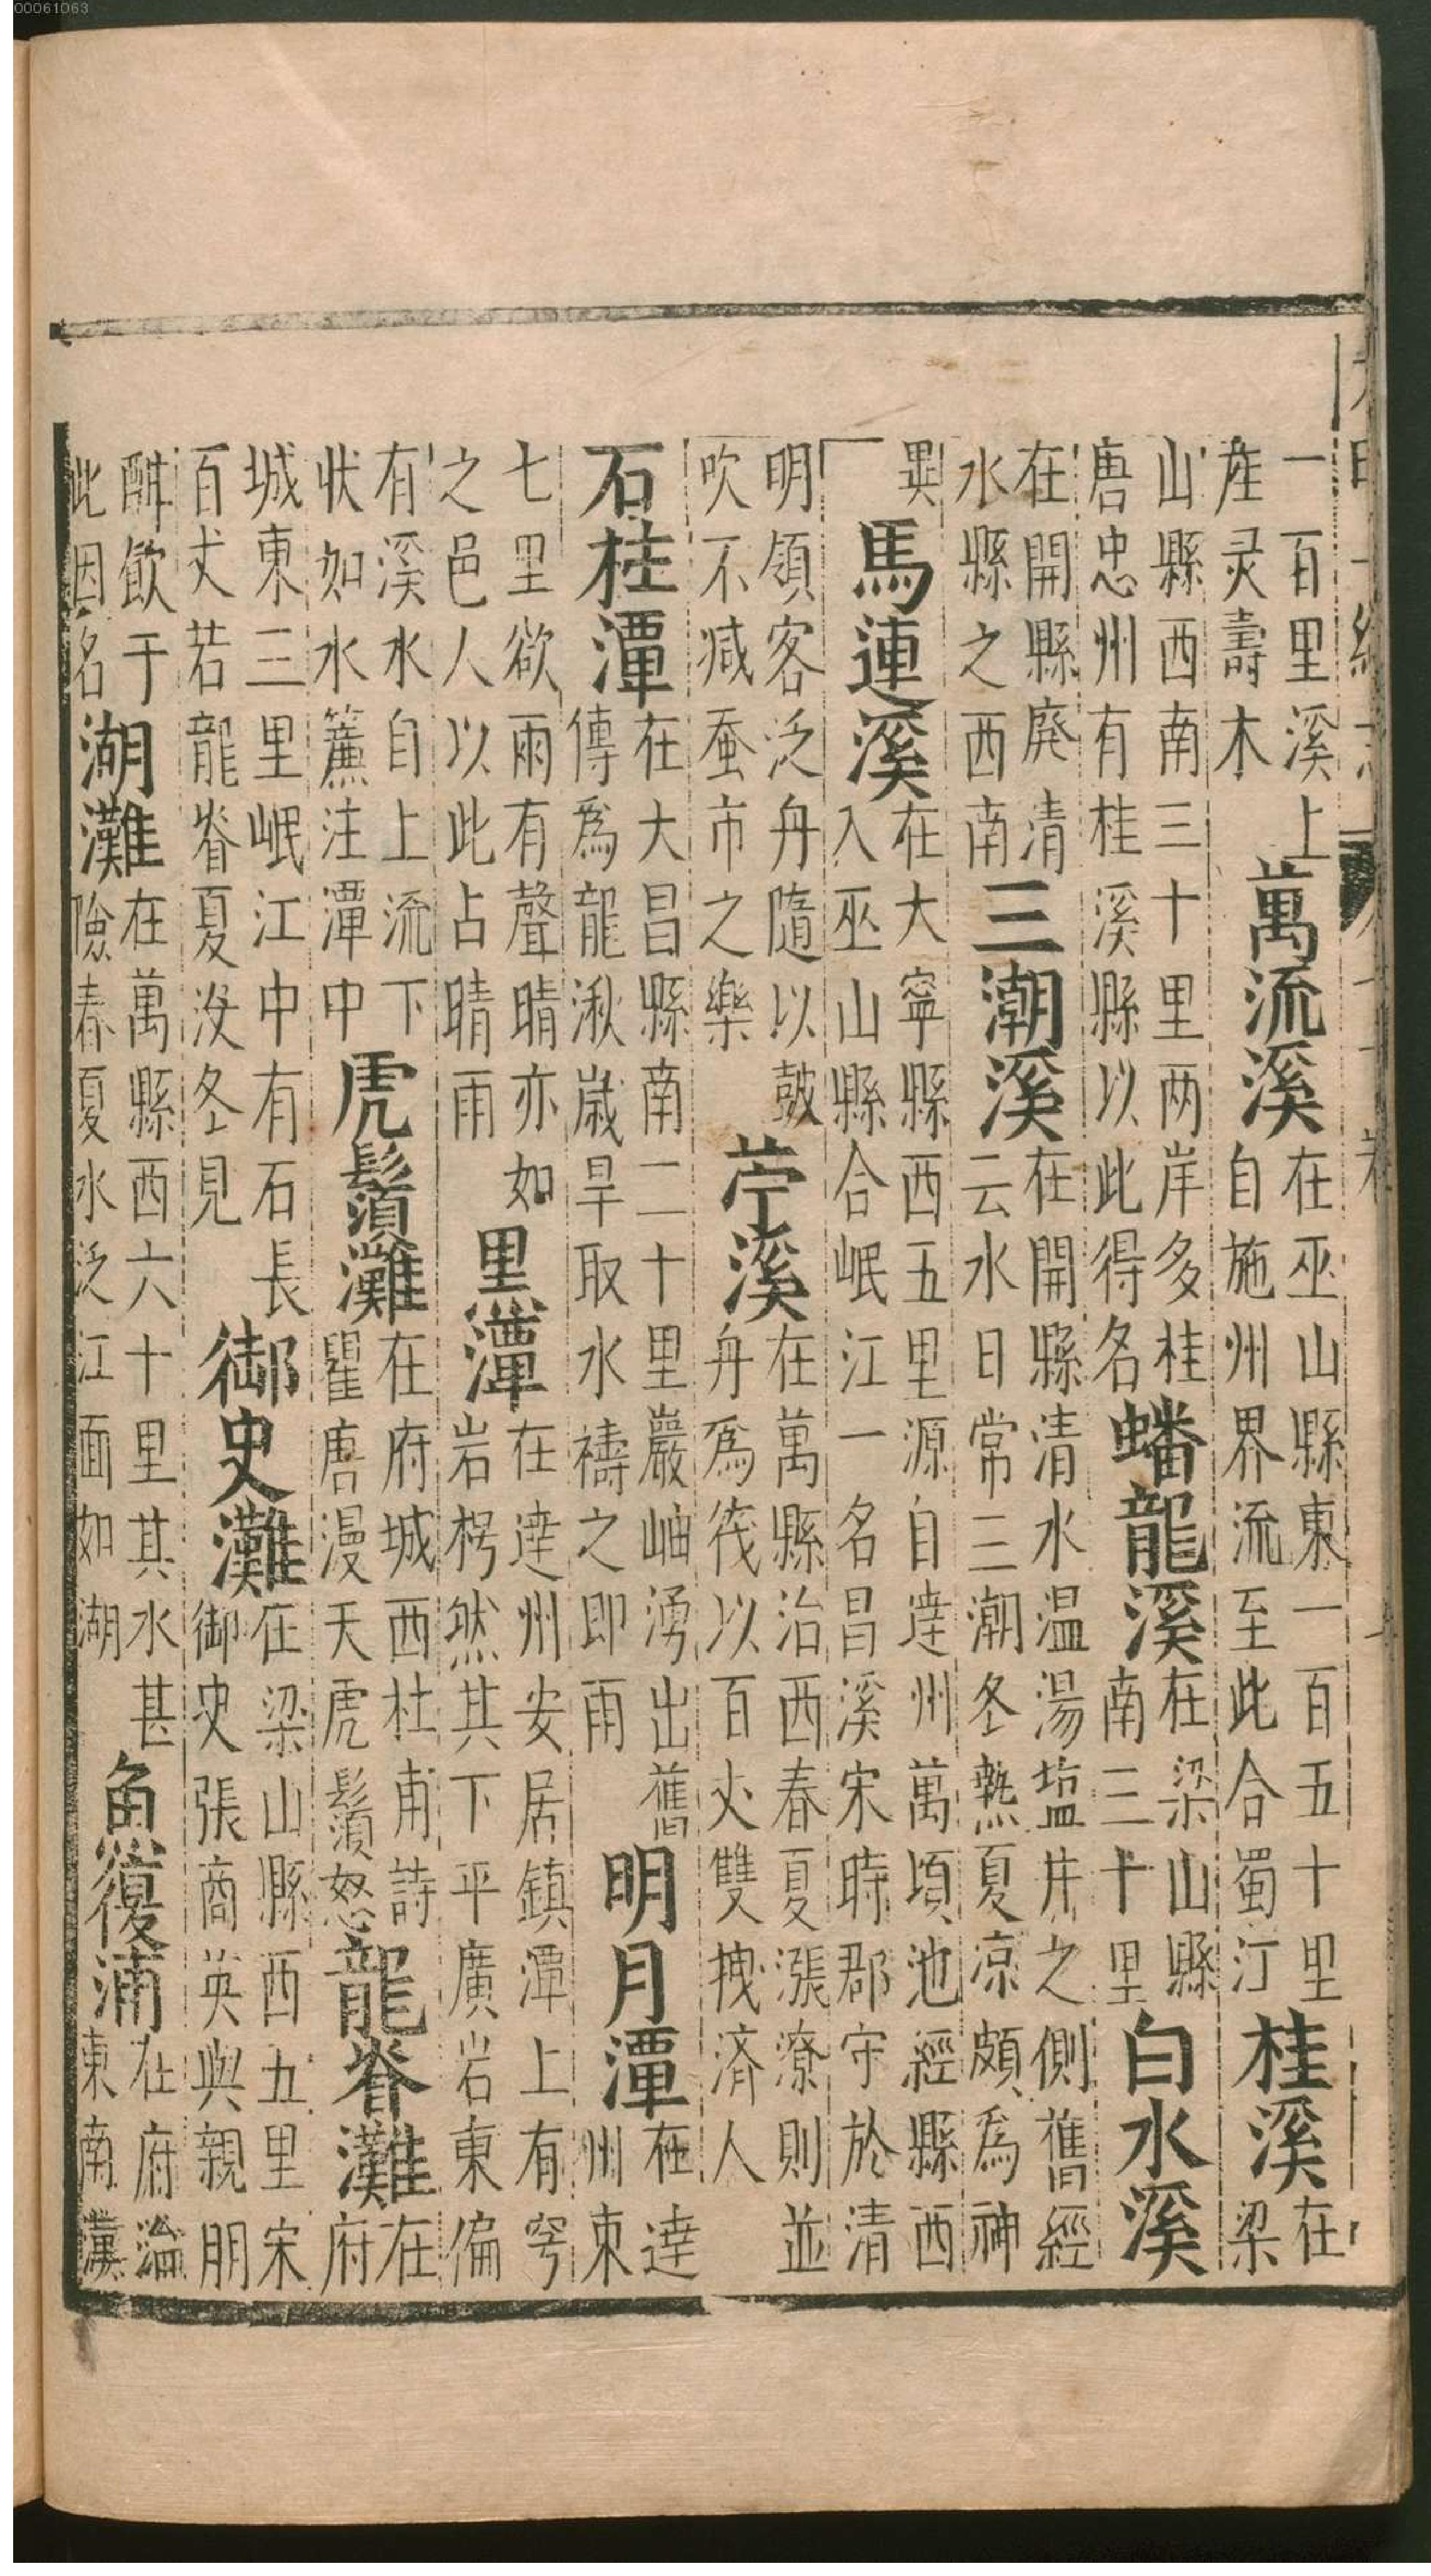 00061063
一百里溪上
産灵壽木
萬流溪
在巫山縣東一百五十里
自施州界流至此合蜀江
桂溪
在
梁
山縣西南三十里两岸多桂
唐忠州有桂溪縣以此得名
蟠龍溪
在梁山縣
南三十里
白水溪
在開縣廃清
水縣之西南
三潮溪
在開縣清水温湯塩井之側舊經
云水日常三潮冬熱夏凉頗為神
異
馬連溪
在大寧縣西五里源自達州萬頃池經縣西
入巫山縣合岷江一名昌溪宋時郡守於清
明領客泛舟隨以鼓
吹不减蚕市之樂
苧溪
在萬縣治西春夏漲潦則並
舟爲筏以百丈雙拽済人
石柱潭
在大昌縣南二十里巖岫湧出舊
傳爲龍湫歲旱取水禱之即雨
明月潭
在達
州東
七里欲雨有聲晴亦如
之邑人以此占晴雨
黑潭
在達州安居鎮潭上有穹
岩枵然其下平廣岩東偏
有溪水自上流下
狀如水簾注潭中
虎鬚灘
在府城西杜甫詩
瞿唐漫天虎鬚怒
龍脊灘
在
府
城東三里岷江中有石長
百丈若龍脊夏沒冬見
御史灘
在梁山縣西五里宋
御史張商英與親朋
酣飲于
此因名
湖灘
在萬縣西六十里其水甚
險春夏水泛江面如湖
魚復浦
在府治
東南漢